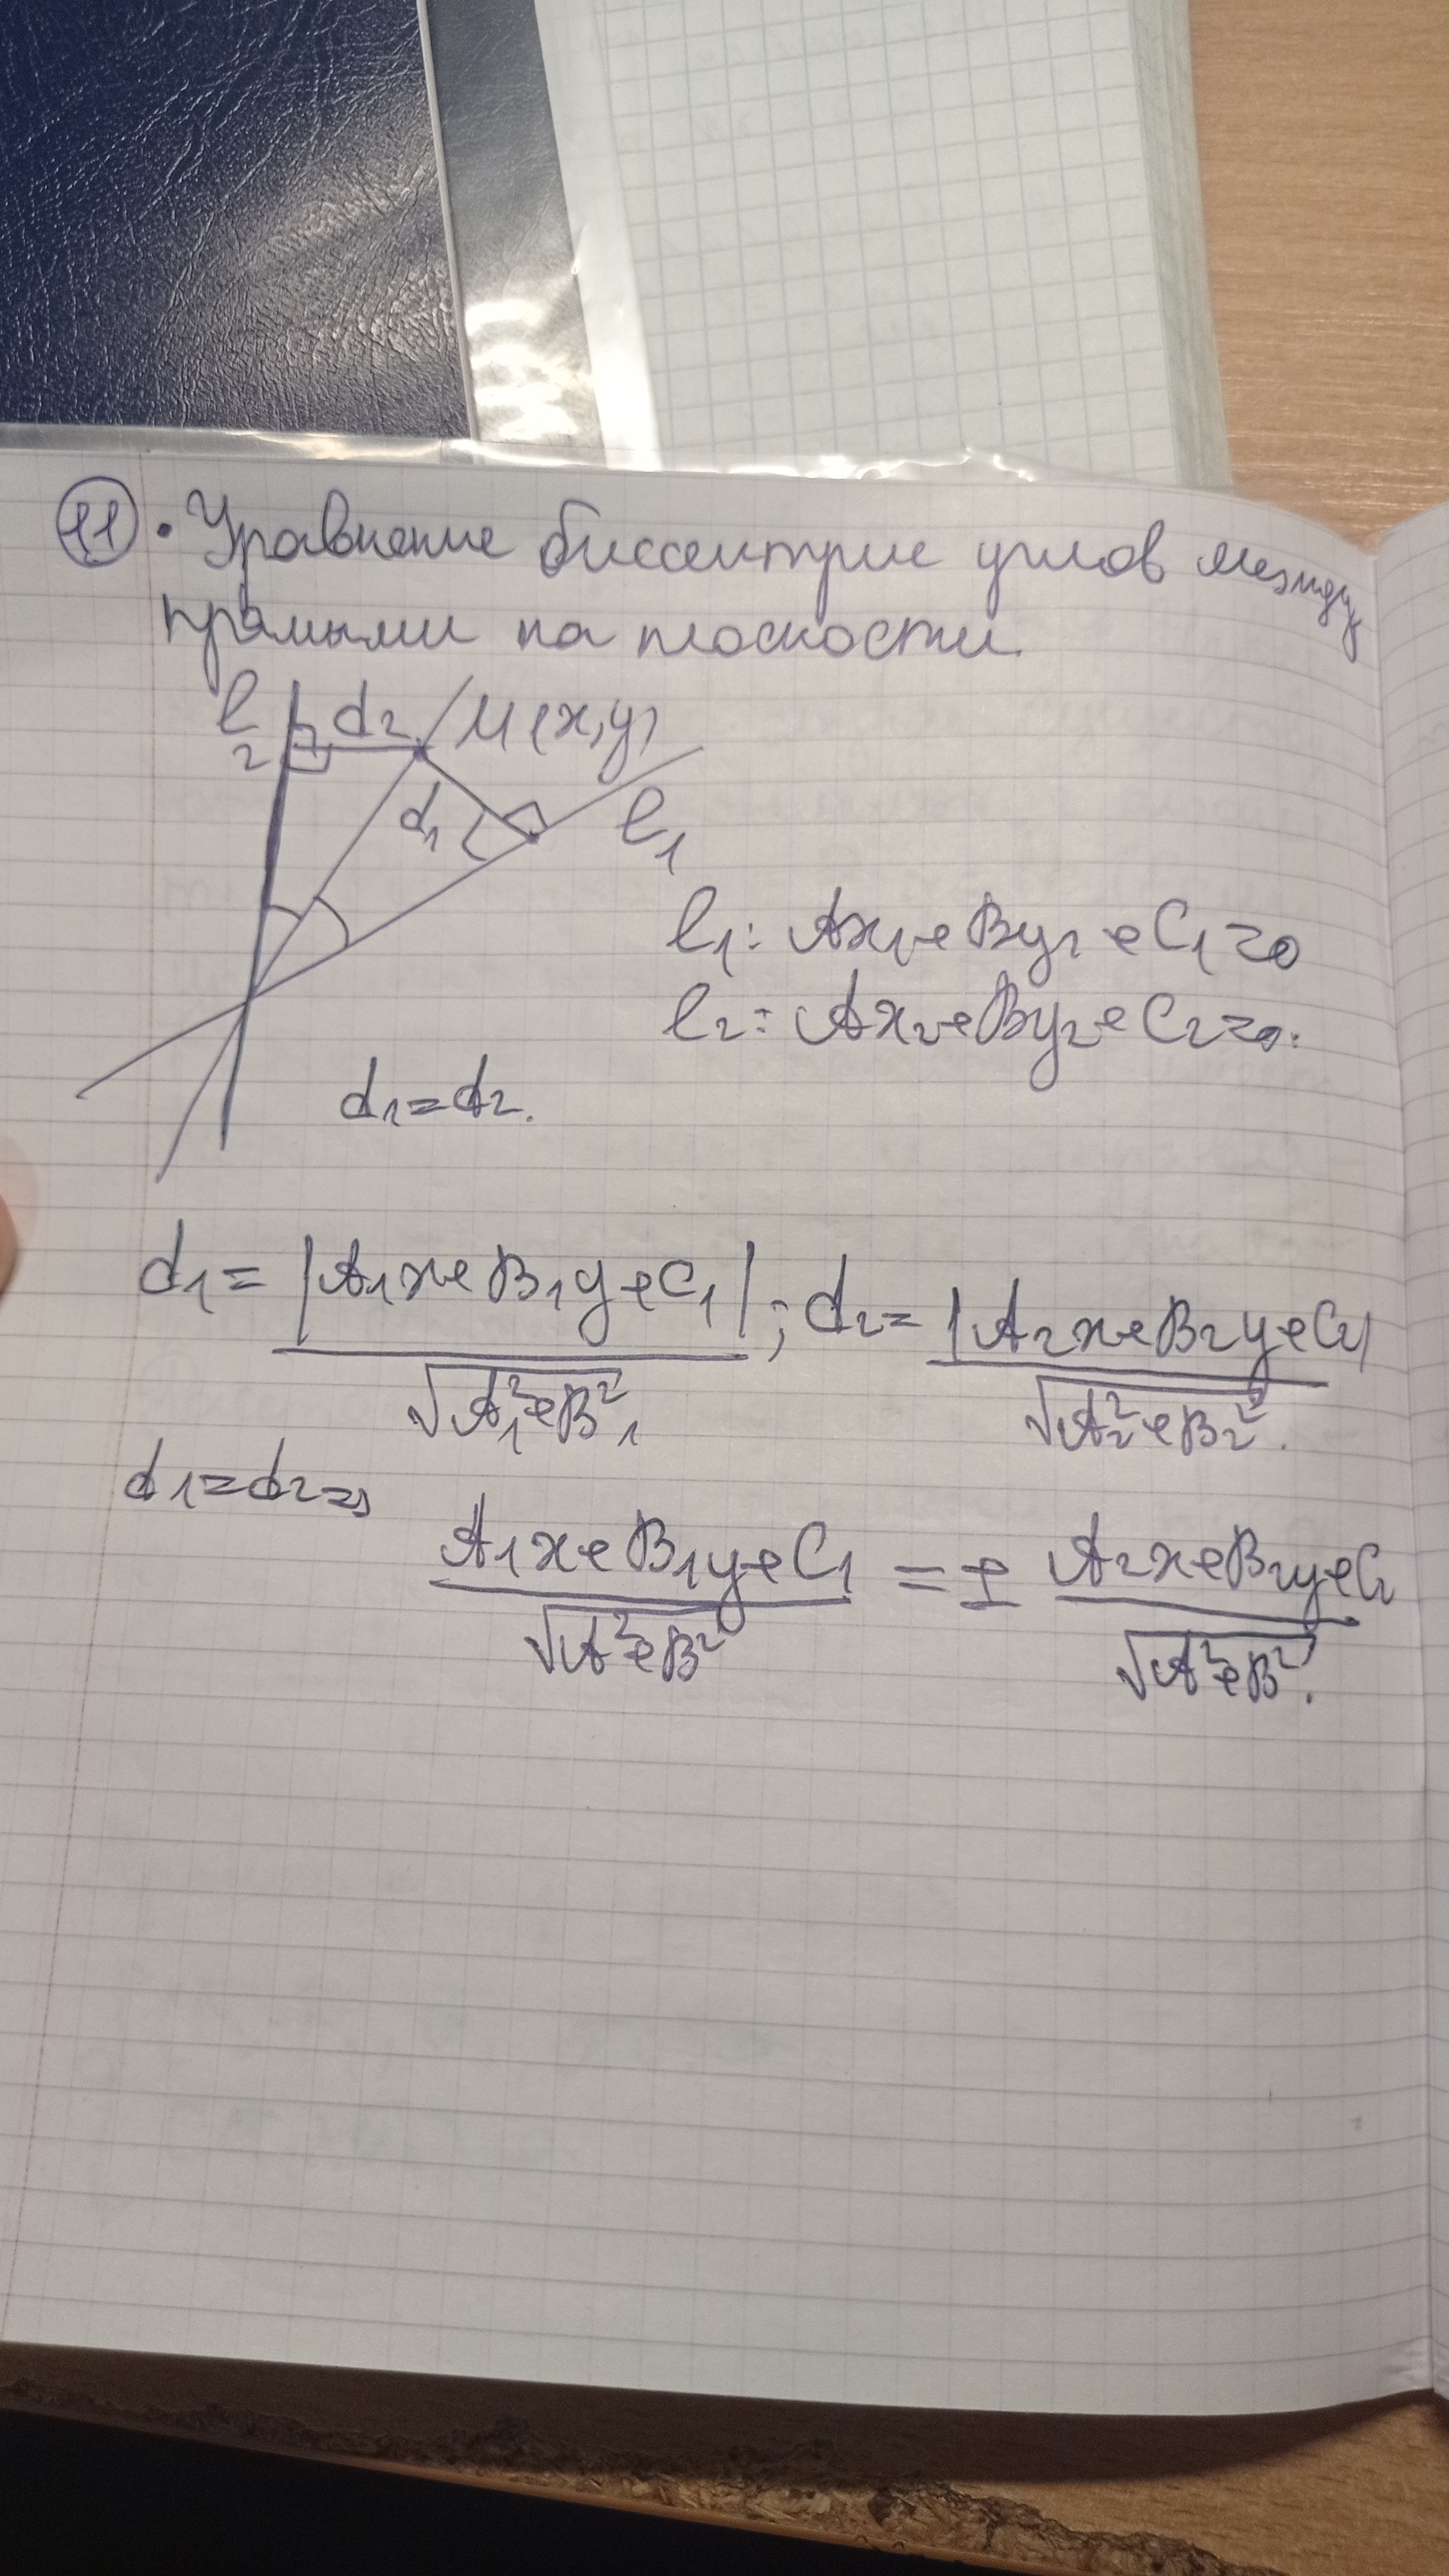 11 • Уравнение биссектрис углов между
прямыми на плоскости.
l2 d2 M(x,y)
d1 l1
l1: Ax1+By1+C1=0
l2: Ax2+By2+C2=0.
d1=d2.
d1= |A1x+B1y+C1| / √(A1²+B1²) ; d2= |A2x+B2y+C2| / √(A2²+B2²).
d1=d2=>
(A1x+B1y+C1) / √(A²+B²) = ± (A2x+B2y+C2) / √(A²+B²).